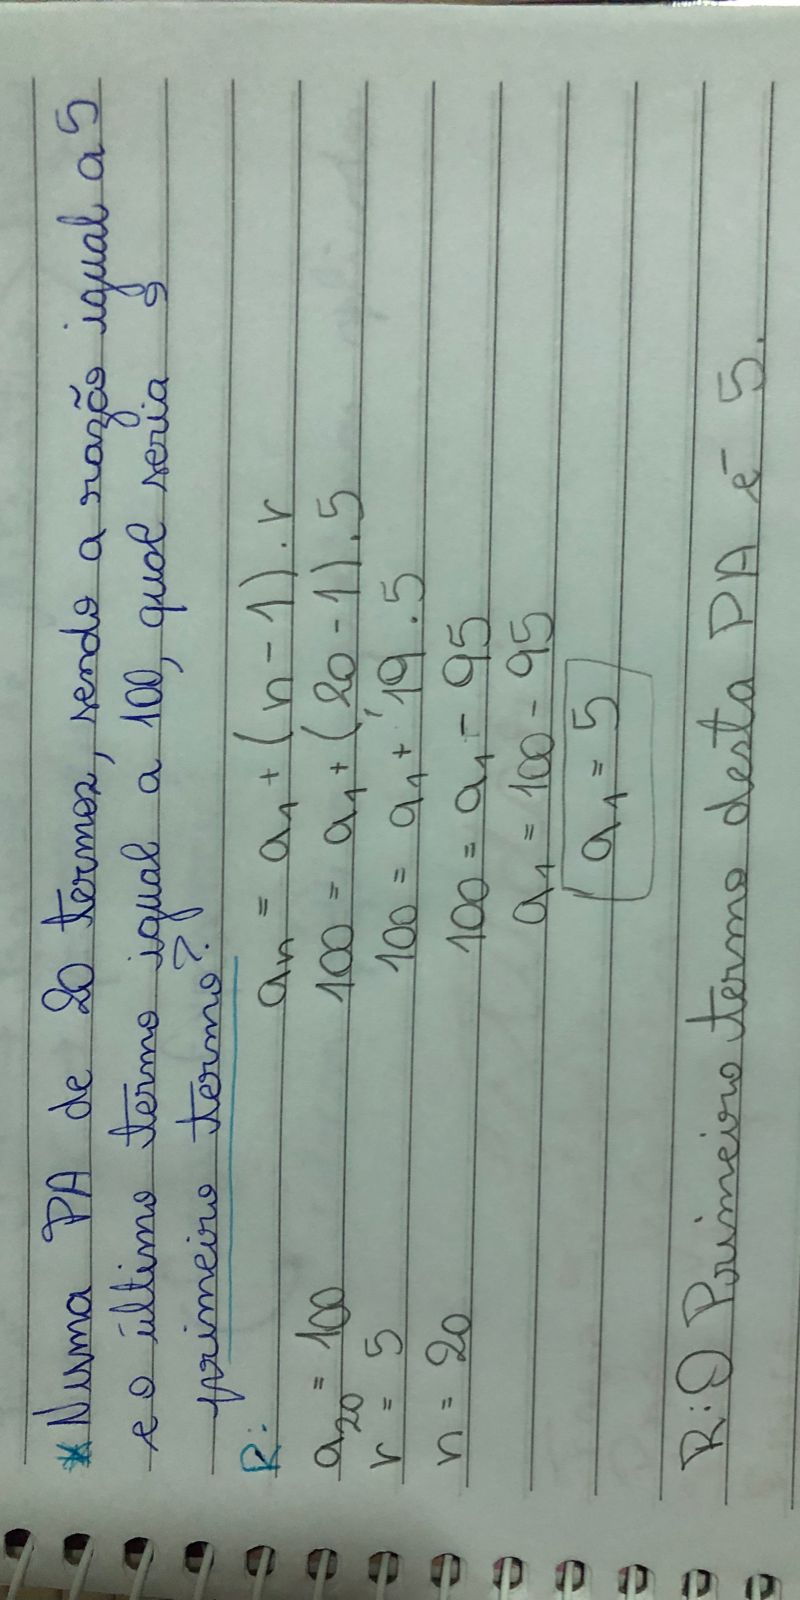 *Numa PA de 20 termos, sendo a razão igual a 5
e o último termo igual a 100, qual seria o
primeiro termo?
R:
an = a1 + (n - 1) . r
a20 = 100
100 = a1 + (20 - 1) . 5
r = 5
100 = a1 + 19 . 5
n = 20
100 = a1 - 95
a1 = 100 - 95
a1 = 5
R: O Primeiro termo desta PA é 5.